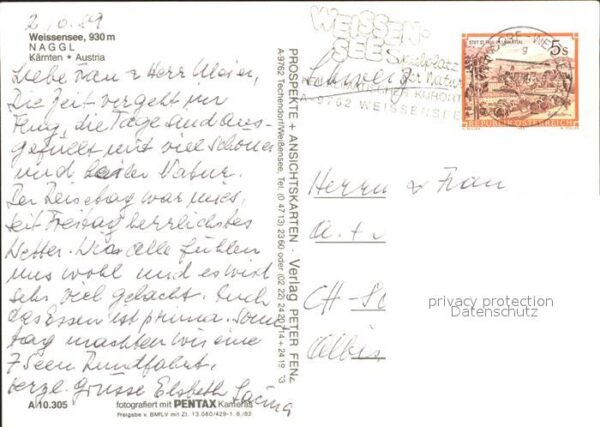 2. 10. 89
Weissensee, 930 m
NAGGL
Kärnten * Austria
Liebe Frau & Herr Meier,
Die Zeit vergeht im
Flug, die Tage sind aus-
gefüllt mit viel Schönem
und Natur.
Der Reisetag war mies,
seit Freitag herrlichstes
Wetter. Wir alle fühlen
uns wohl und es wird
sehr viel gelacht. Auch
das Essen ist prima. Sonn
tag machten wir eine
7 Seen Rundfahrt.
Herzl. Grüsse Elsbeth
A 10.305
fotografiert mit PENTAX Kameras
Freigabe v. BMLV mit Zl. 13.080/429-1.6/83
PROSPEKTE + ANSICHTSKARTEN Verlag PETER FEN
A-9762 Techendorf/Weißensee, Tel. (0 47 13) 23 60 oder (02 22) 24 20 14 + 24 19
WEISSEN-
SEE
der Natur
KURORT
A-9762 WEISSENSEE
Schweiz
5 S
REPUBLIK ÖSTERREICH
Herrn & Frau
CH-
Albis
privacy protection
Datenschutz